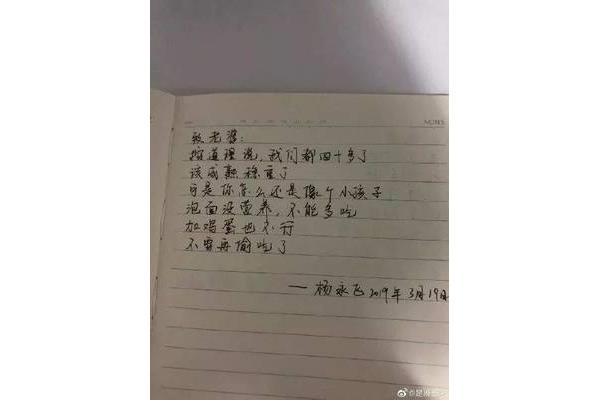 致老婆:
按道理说,我们都四十多了
该成熟稳重了
可是你怎么还是像个小孩子
泡面没营养,不能多吃
加鸡蛋也不行
不要再偷吃了
——杨永飞2019年3月19日